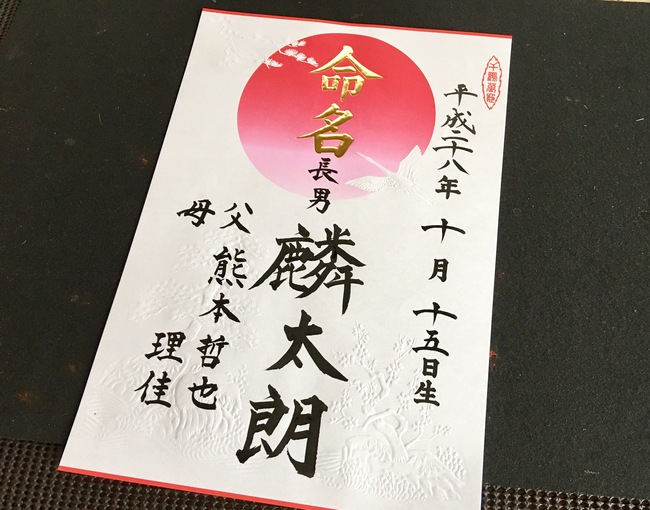 平成二十八年 十月 十五日生
命名
長男
麟太朗
父 熊本哲也
母 理佳